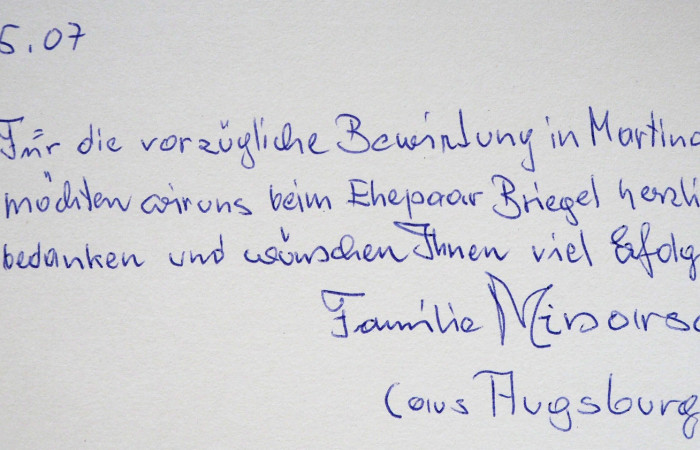 5.07
Für die vorzügliche Bewirtung in Martina
möchten wir uns beim Ehepaar Briegel herzli
bedanken und wünschen Ihnen viel Erfolg
Familie
(aus Augsburg